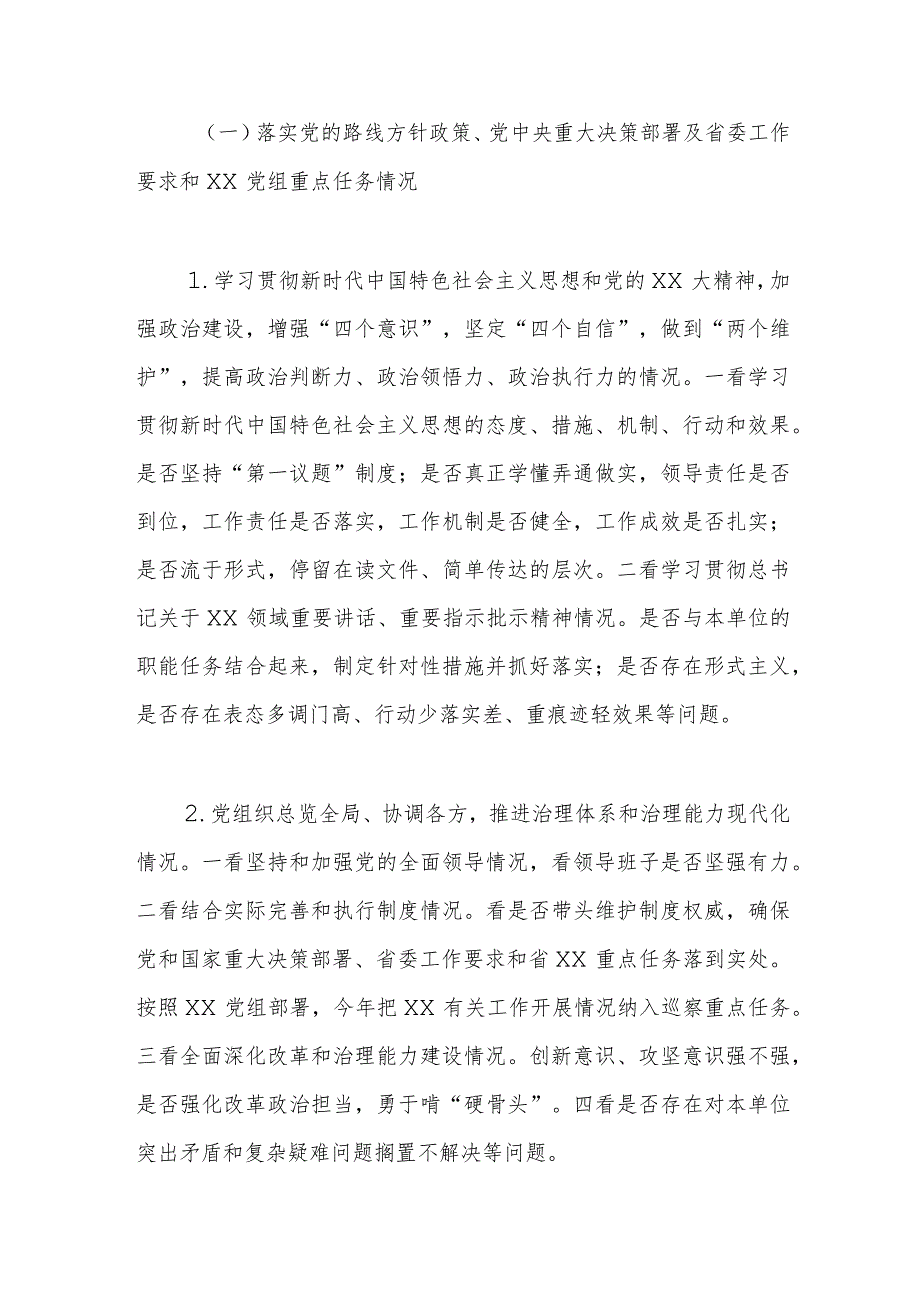 （一）落实党的路线方针政策、党中央重大决策部署及省委工作
要求和 XX 党组重点任务情况
1.学习贯彻新时代中国特色社会主义思想和党的 XX 大精神，加
强政治建设，增强“四个意识”，坚定“四个自信”，做到“两个维
护”，提高政治判断力、政治领悟力、政治执行力的情况。一看学习
贯彻新时代中国特色社会主义思想的态度、措施、机制、行动和效果。
是否坚持“第一议题”制度；是否真正学懂弄通做实，领导责任是否
到位，工作责任是否落实，工作机制是否健全，工作成效是否扎实；
是否流于形式，停留在读文件、简单传达的层次。二看学习贯彻总书
记关于 XX 领域重要讲话、重要指示批示精神情况。是否与本单位的
职能任务结合起来，制定针对性措施并抓好落实；是否存在形式主义，
是否存在表态多调门高、行动少落实差、重痕迹轻效果等问题。
2.党组织总览全局、协调各方，推进治理体系和治理能力现代化
情况。一看坚持和加强党的全面领导情况，看领导班子是否坚强有力。
二看结合实际完善和执行制度情况。看是否带头维护制度权威，确保
党和国家重大决策部署、省委工作要求和省 XX 重点任务落到实处。
按照 XX 党组部署，今年把 XX 有关工作开展情况纳入巡察重点任务。
三看全面深化改革和治理能力建设情况。创新意识、攻坚意识强不强，
是否强化改革政治担当，勇于啃“硬骨头”。四看是否存在对本单位
突出矛盾和复杂疑难问题搁置不解决等问题。